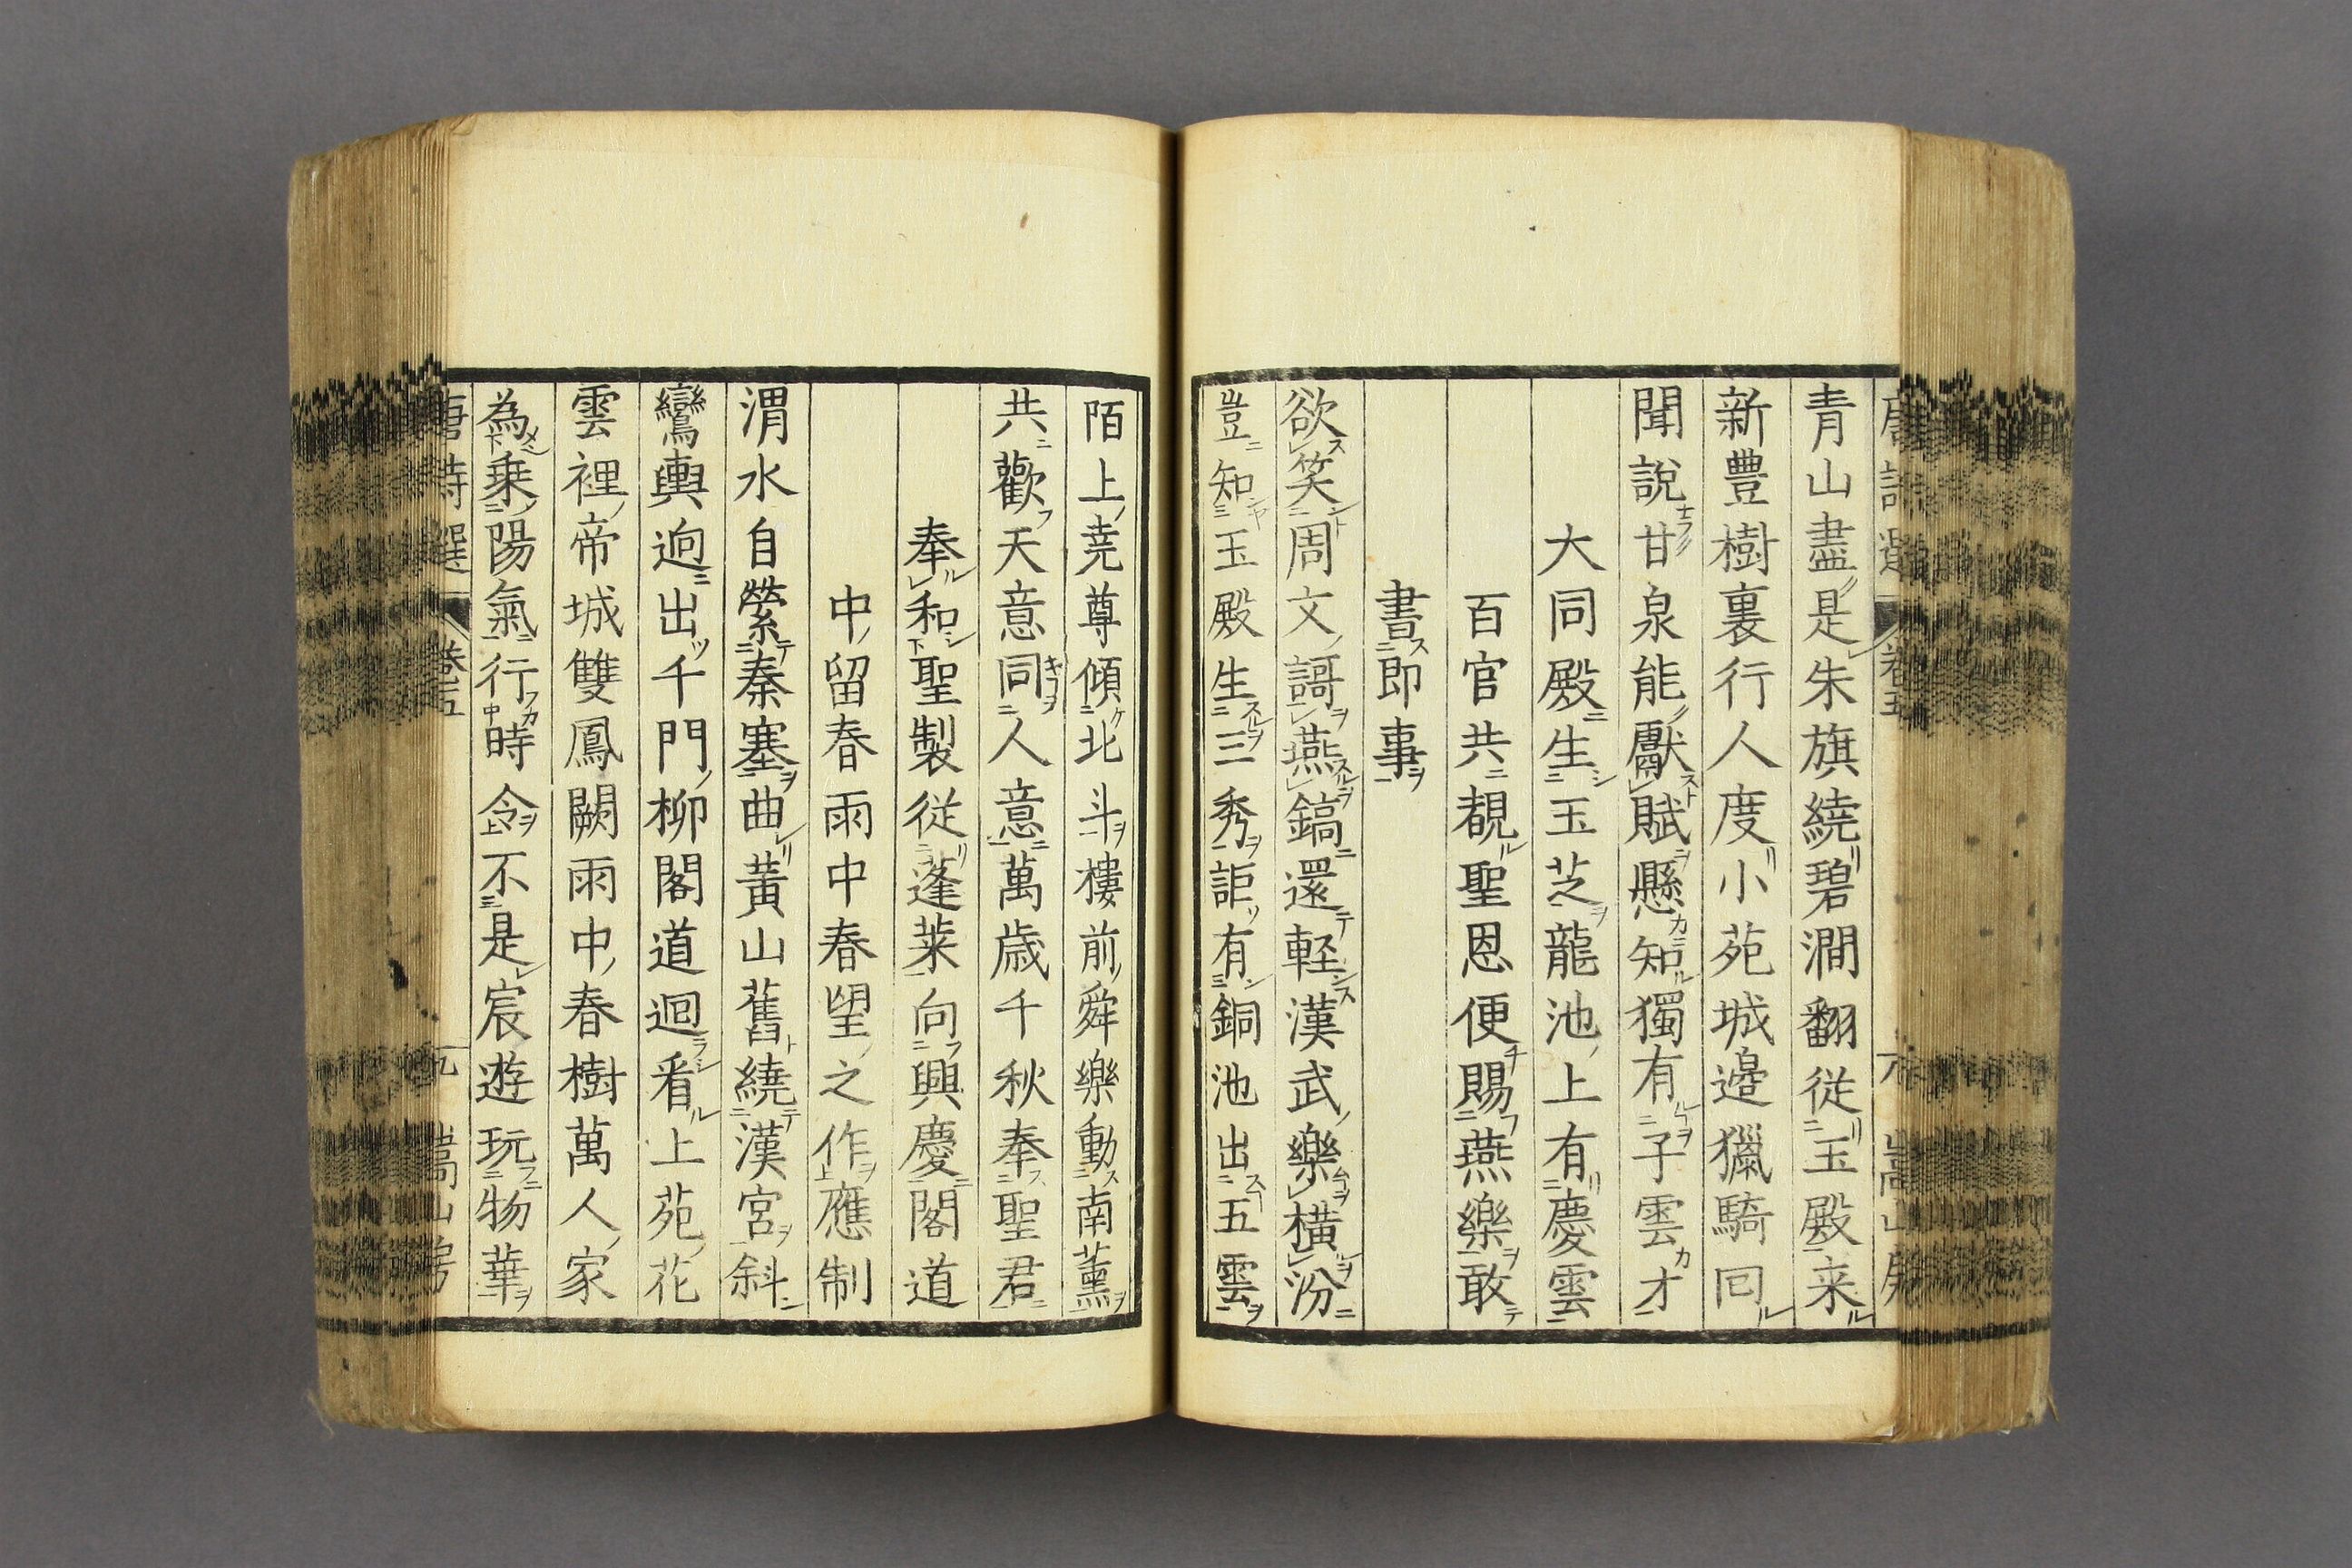 唐詩選 卷五 六 嵩山房
青山盡是朱旗繞碧澗翻從玉殿来
新豐樹裏行人度小苑城邊獵騎回
聞說甘泉能獻賦懸知獨有子雲才
大同殿生玉芝龍池上有慶雲
百官共覩聖恩便賜燕樂敢
書即事
欲笑周文謌燕鎬還軽漢武樂横汾
豈知玉殿生三秀詎有銅池出五雲
陌上堯尊傾北斗樓前舜樂動南薰
共歡天意同人意萬歳千秋奉聖君
奉和聖製從蓬莱向興慶閣道
中留春雨中春望之作應制
渭水自縈秦塞曲黄山舊繞漢宮斜
鸞輿逈出千門柳閣道迴看上苑花
雲裡帝城雙鳳闕雨中春樹萬人家
為乗陽氣行時令不是宸遊玩物華
唐詩選 卷五 九 嵩山房